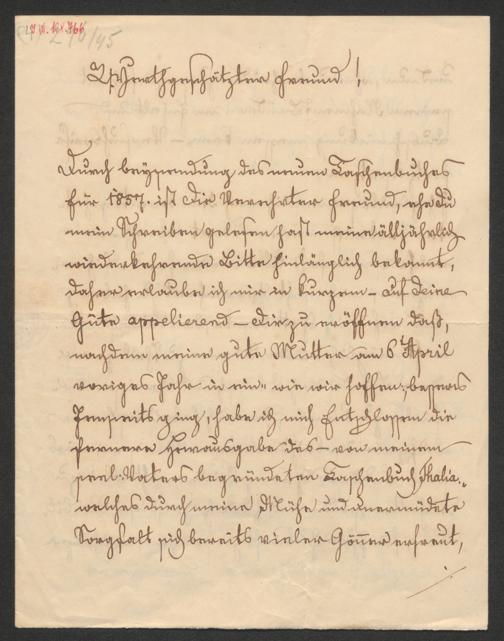 Werthgeschätzter Freund!
Durch beysendung des neuen Taschenbuches
für 1857. ist Dir Verehrter Freund, ehe Du
mein Schreiben gelesen hast meine alljährlich
wiederkehrende Bitte hinlänglich bekannt,
daher erlaube ich mir in kurzem – auf Deine
Güte appelierend – Dir zu eröffnen daß,
nachdem meine gute Mutter am 6t April
voriges Jahr in ein – wie wir hoffen, besseres
Jenseits ging, habe ich mich Entschlossen die
fernere Herausgabe des – von meinem
seel: Vaters begründeten Taschenbuch Thalia
welches durch meine Mühe und unermüdete
Sorgfalt sich bereits vieler Gönner erfreut,